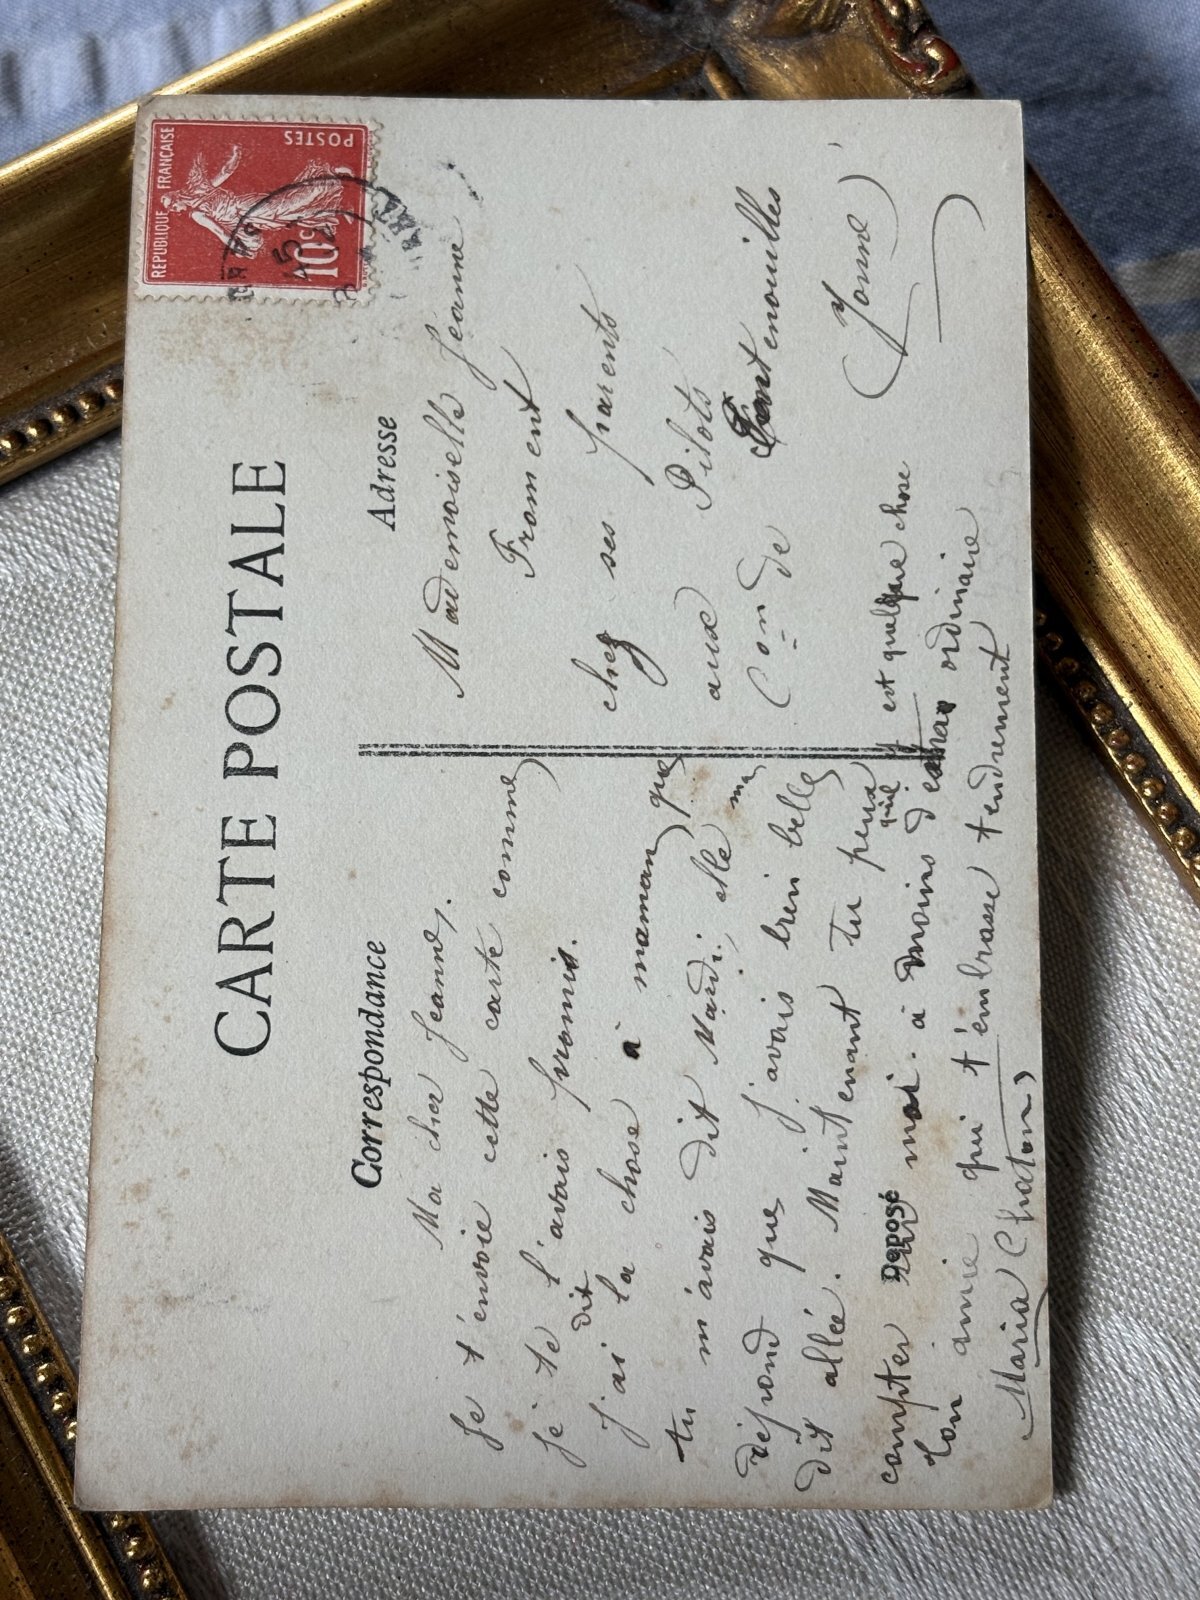 REPUBLIQUE FRANÇAISE
POSTES
10c
CARTE POSTALE
Correspondance
Ma cher Jeanne,
Je t'envoie cette carte comme
je te l'avais promis.
j'ai dit la chose à maman que
tu m'avais dit Mardi, elle m'a
répond que j'avais brin belle
dit allée. Maintenant tu peux
compter sur moi. à moins qu'il y est quelque chose
d'extraordinaire
Ton amie qui t'embrasse tendrement
Maria Chaton
Déposé
Adresse
Mademoiselle Jeanne
Froment
chez ses parents
aux Pilots
Con de Fontenouilles
(Yonne)